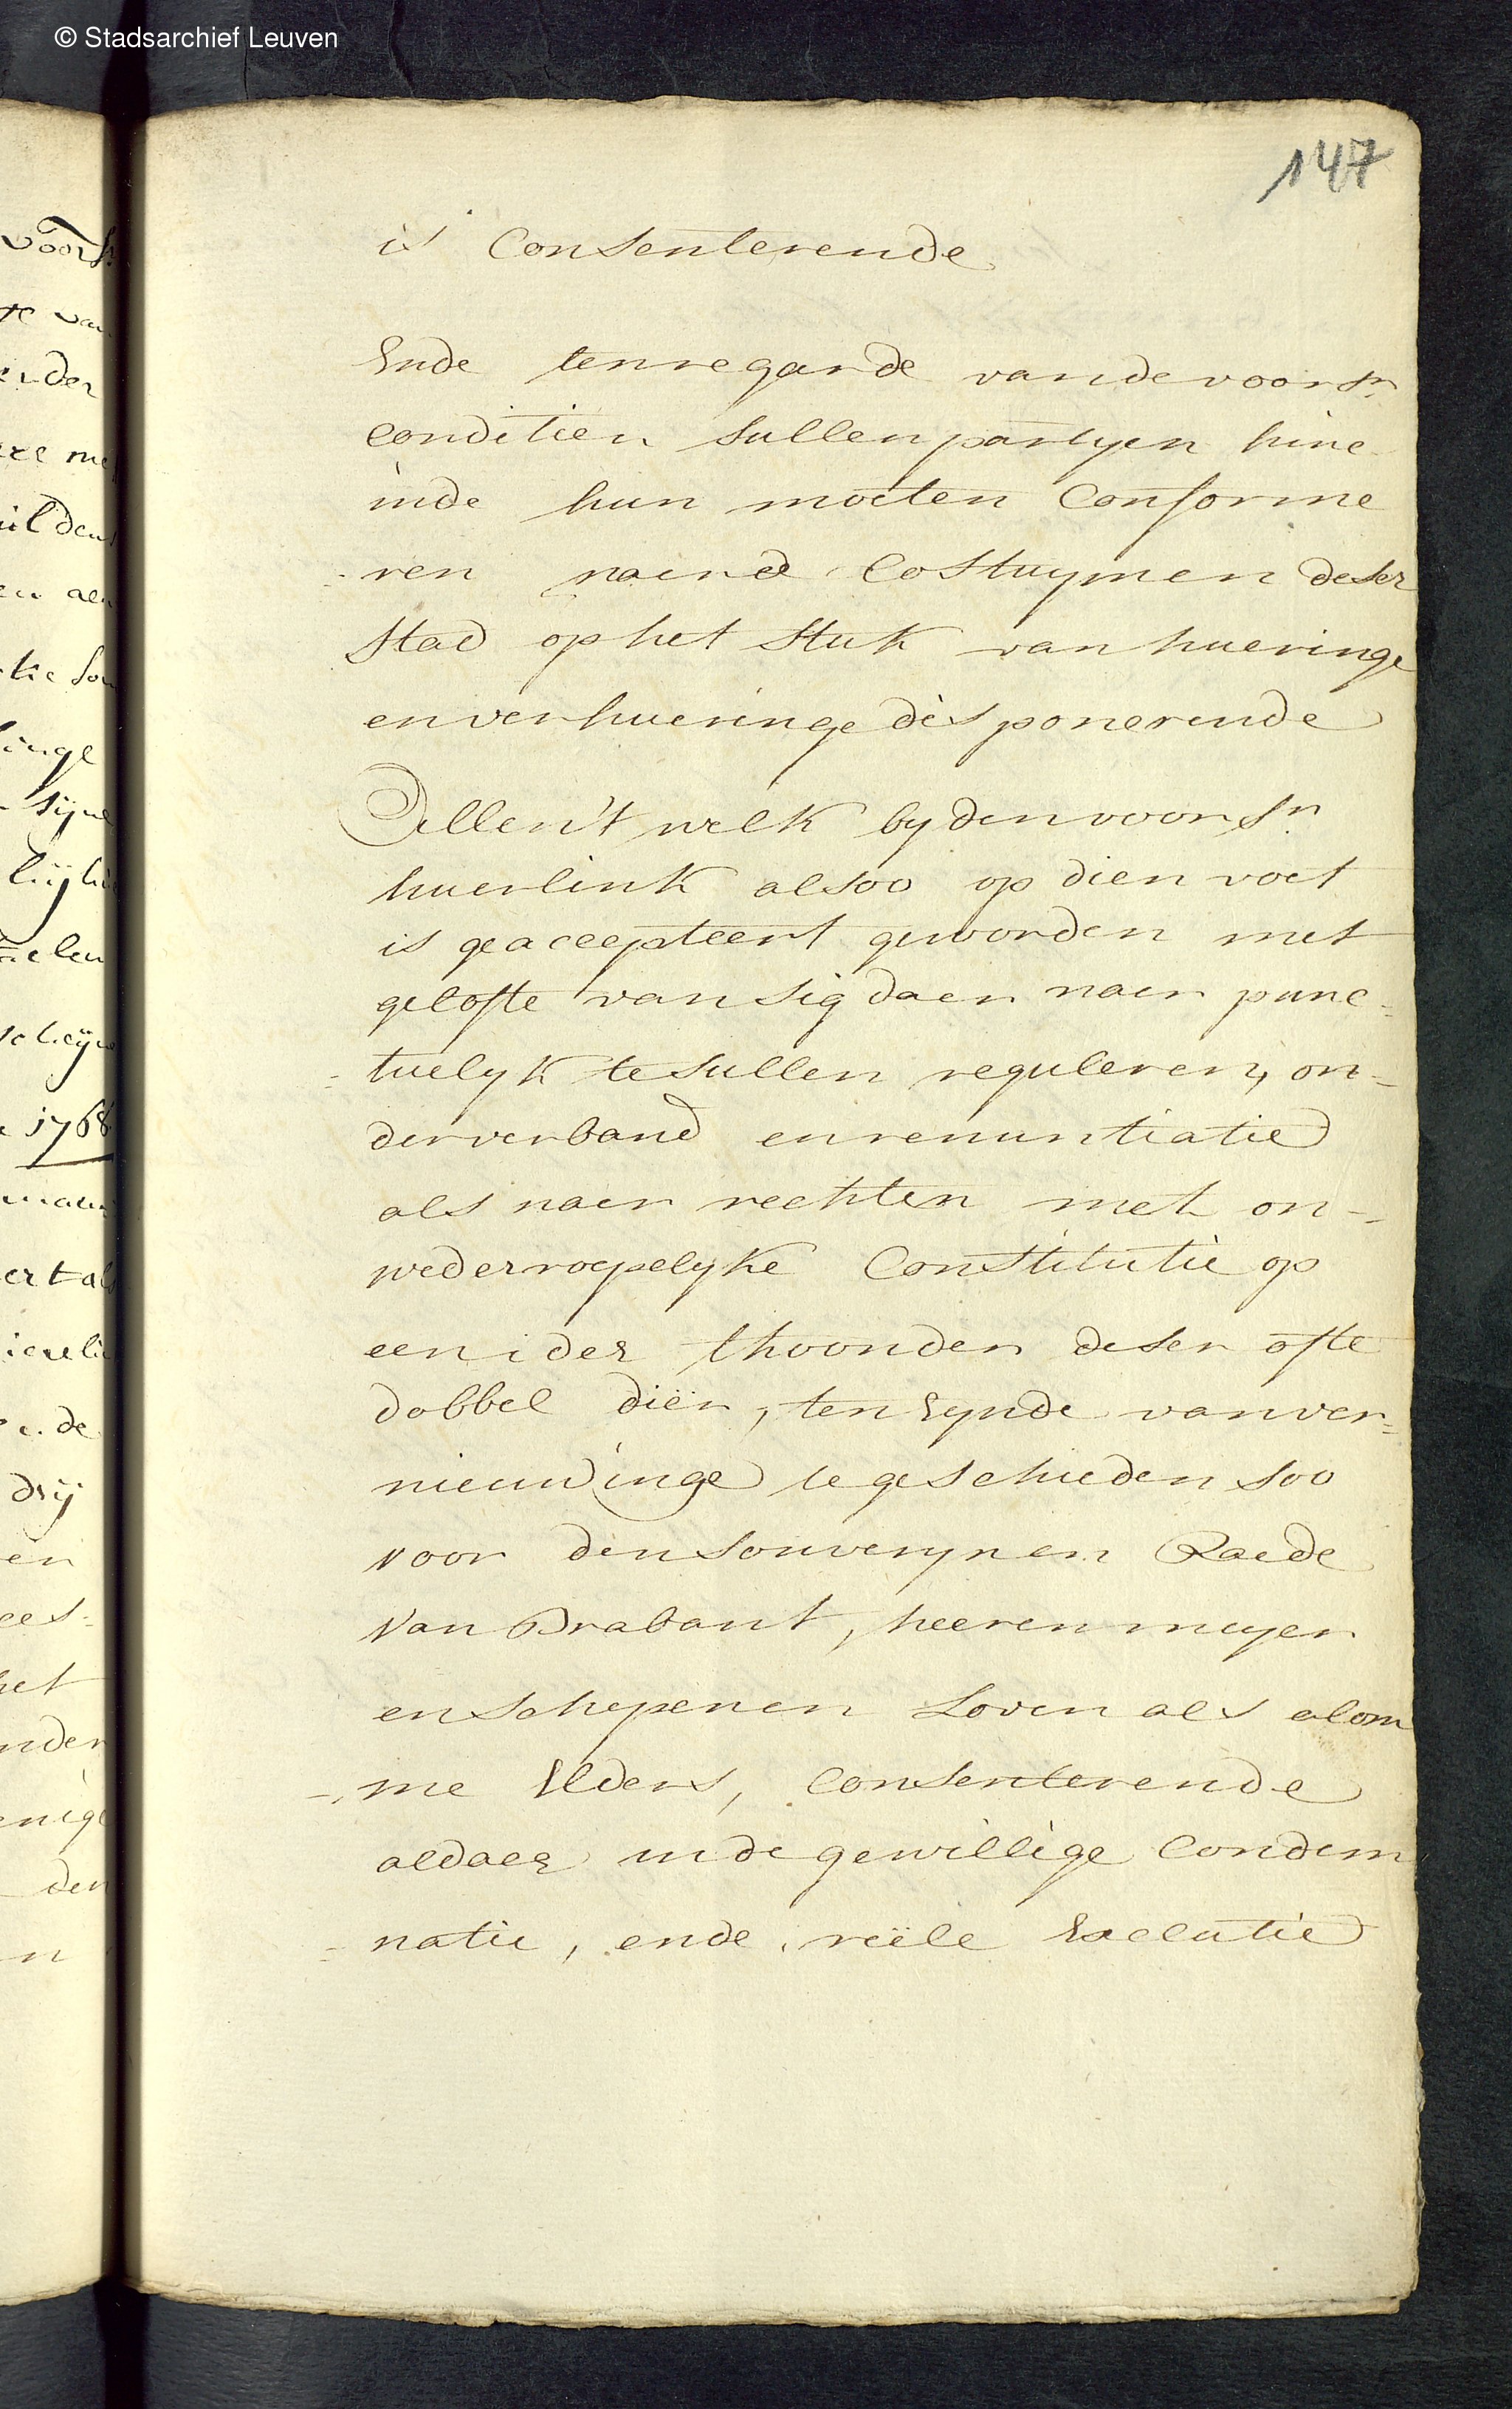 © Stadsarchief Leuven
147
is Consenterende
Ende tenregarde vande voorsn.
conditien sullen partyen hinc
inde hun moeten Conforme
-ren naer de Costuymen deser
Stad op het Stuk van hueringe
en verhueringe disponerende
Allen't welk by den voorsn
huerlink alsoo op dien voet
is geaccepteert geworden met
gelofte van sig daer naer punc=
=tuelyk te sullen reguleren, on=
derverband en renuntiatie
als naer rechten met on-
wederroepelyke Constitutie op
een ider thoonder deser ofte
dobbel dier, ten Eynde van ver=
nieuwinge te geschieden soo
voor den souverynen Raede
Van Brabant, heeren meyer
en schepenen Loven als alom
-me Elders, Consenterende
aldaer in de gewillige Condem
-natie, ende reële Execlutie
voors.
van
der
1768
drÿ
het
den